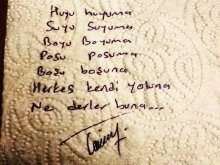 Huyu huyuma
Suyu Suyuma
Boyu Boyuma
Posu Posuma
Boşu boşuna
Herkes kendi yoluna
Ne derler buna...